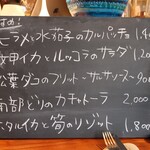 すすめ
ヒラメと水茄子のカルパッチョ 1.4
甲イカとルッコラのサラダ 1.20
松葉ダコのフリット・サルサソース 90
南部どりのカチャトーラ 2.000
ホタルイカと筍のリゾット 1.800